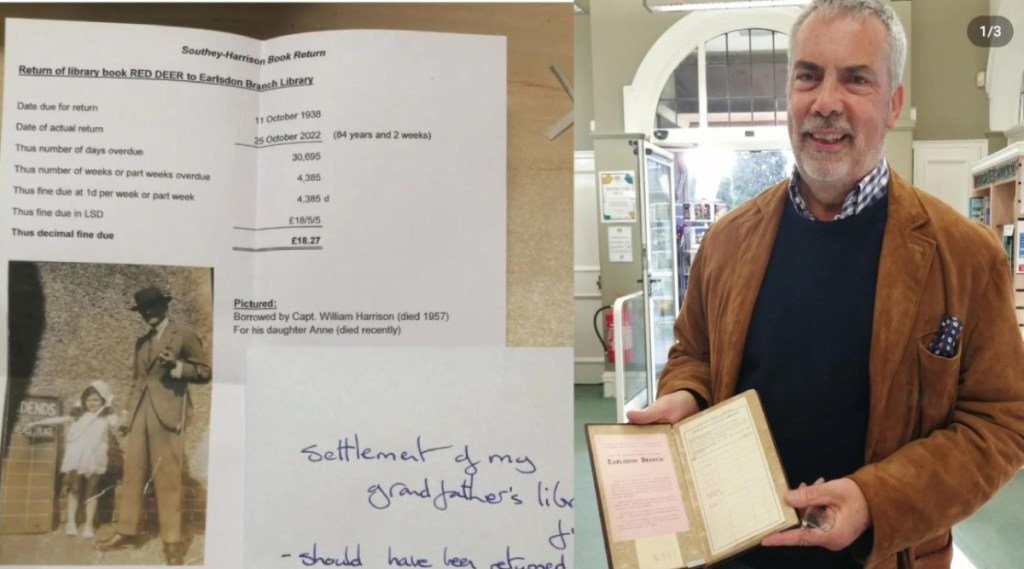 Southey-Harrison Book Return
Return of library book RED DEER to Earlsdon Branch Library
Date due for return 11 October 1938
Date of actual return 25 October 2022 (84 years and 2 weeks)
Thus number of days overdue 30,695
Thus number of weeks or part weeks overdue 4,385
Thus fine due at 1d per week or part week 4,385 d
Thus fine due in LSD £18/5/5
Thus decimal fine due £18.27
Pictured:
Borrowed by Capt. William Harrison (died 1957)
For his daughter Anne (died recently)
DENDS
Settlement of my
grandfather's
- should have been returned
1/3
EARLSDON BRANCH